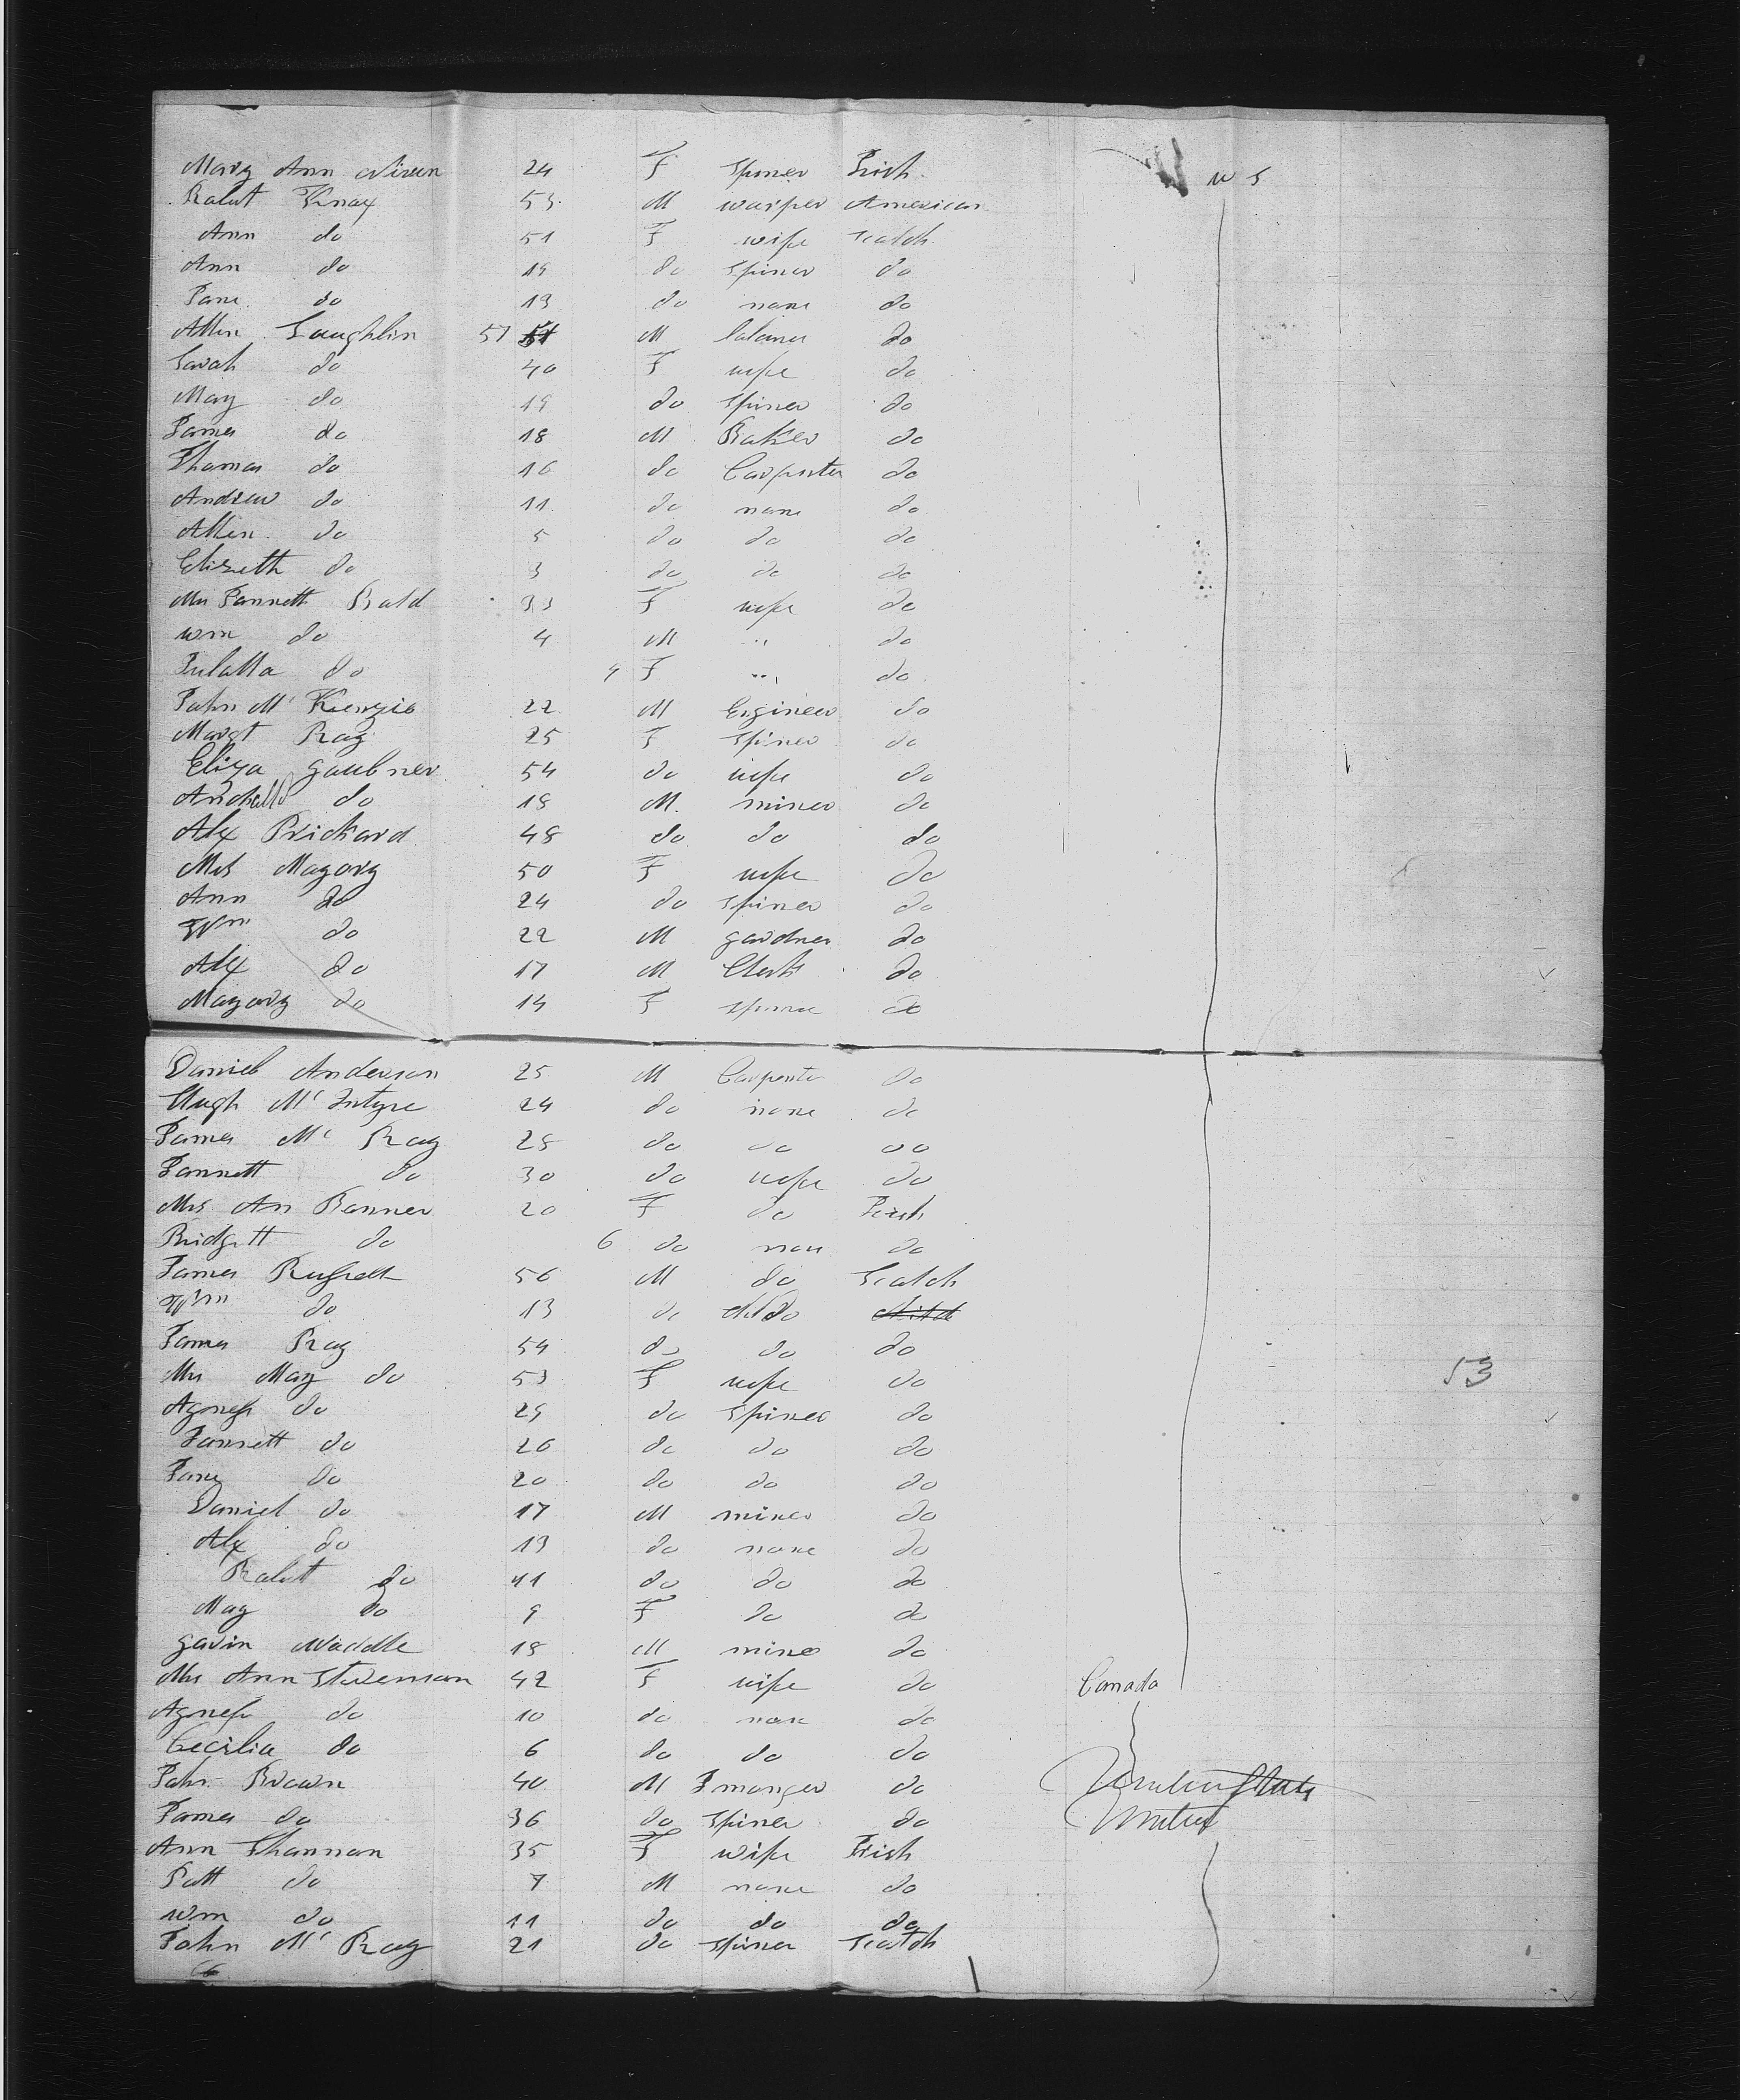 Mary Ann Niven 24 F Spiner Irish U S
Robut Knox 53 M warper American
Ann do 51 F wife Scotch
Ann do 19 do Spiner do
Jane do 13 do none do
Allen Laughlin 51 M do
Sarah do 40 F wife do
May do 19 do Spiner do
James do 18 M Baker do
Thomas do 16 do Carpenter do
Andrew do 11 do none do
Allen do 5 do do do
Elizeth do 3 do do do
Mrs Jannett Bald 33 F wife do
wm do 4 M " do
do 4 F " do
John Mc Kenzie 22 M Engineer do
Margt Ray 25 F Spiner do
Eliza 54 do wife do
do 18 M miner do
Alex Prickard 48 do do do
Mrs Magory 50 F wife do
Ann do 24 do Spiner do
Wm do 22 M gardner do
Alex do 17 M Clerk do
Magory do 14 F Spiner do
Daniel Anderson 25 M Carpenter do
Hugh Mc Intyre 24 do none do
James Mc Ray 28 do do do
Jannett do 30 do wife do
Mrs An Bonner 20 F do Irish
Bridgett do 6 do non do
James 56 M do Scotch
Wm do 13 do do
James Ray 54 do do do
Mrs May do 53 F wife do
Agness do 29 do Spiner do
Jannett do 26 do do do
Jane do 20 do do do
Daniel do 17 M miner do
Alex do 13 do none do
Robut do 11 do do do
May do 9 F do do
gavin Waddle 18 M miner do
Mrs Ann Stevenson 42 F wife do Canada
Agness do 10 do none do
Cecilia do 6 do do do
John Brown 40 M I monger do
James do 36 do Spiner do United
Ann Shannan 35 F wife Irish
Patt do 7 M none do
wm do 11 do do do
John Mc Ray 21 do Spiner Scotch
53